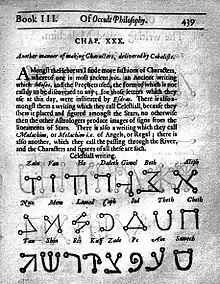 Book III. Of Occult Philosophy. 439
CHAP. XXX.
Another manner of making Characters, delivered by Cabalists.
AMongst the Hebrews I find more fashions of Characters,
whereof one is most ancient, viz. an Ancient writing
which Moses, and the Prophets used, the form of which is not
rashly to be discovered to any, for those letters which they
use at this day, were instituted by Esdras. There is also a-
mongst them a writing which they call Celestiall, because they
shew it placed and figured amongst the Stars, no otherwise
then the other Astrologers produce images of signs from the
lineaments of Stars. There is also a writing which they call
Malachim, or Melachim i.e. of Angels, or Regal; there is
also another, which they call the passing through the River,
and the Characters and figures of all these are such.
Celestiall writing.
Zain Vau He Daleth Gimel Beth Aleph
Nun Mem Lamed Caph Iod Theth Cheth
Tau Shin Res Kuff Zade Pe Ain Samech